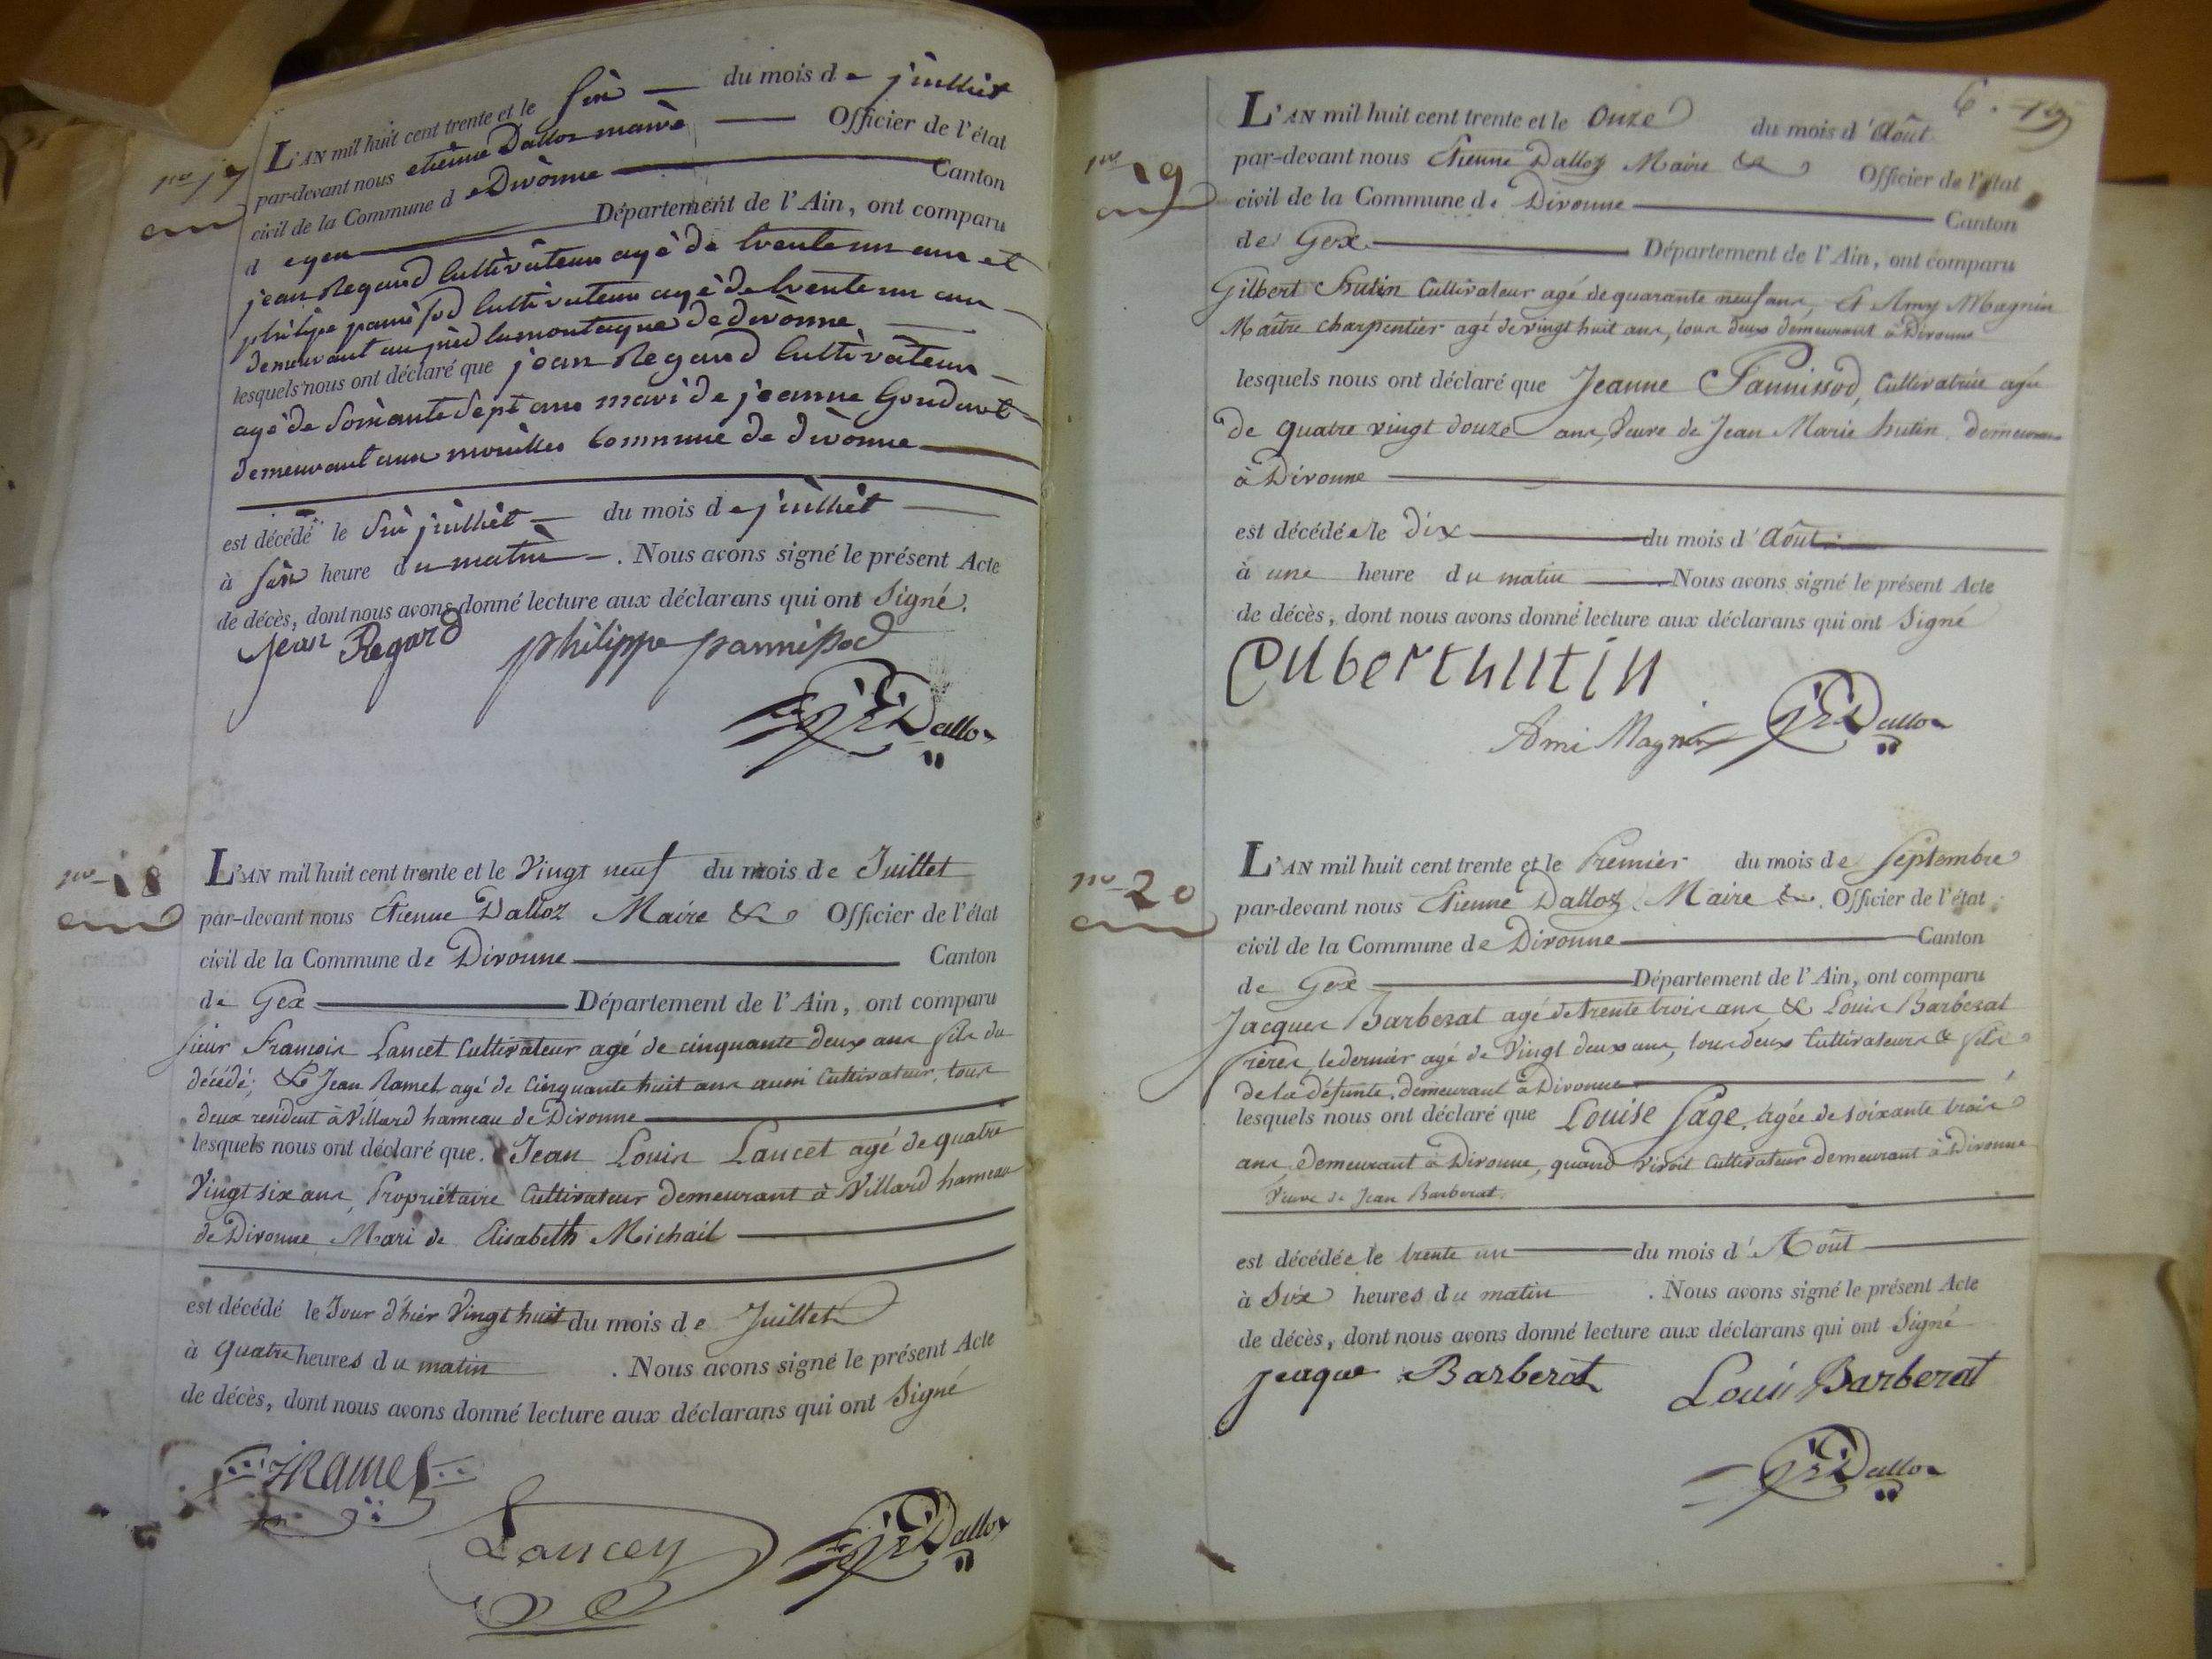 no 17
L'AN mil huit cent trente et le six du mois de juillèt
par-devant nous etiènne Dalloz maire Officier de l'état
civil de la Commune de Divonne Canton
de gex Département de l'Ain, ont comparu
jean Regard Cultivateur agé de trente un ans et
philipe panissod Cultivateur agé de trente un ans
demeurant au pied la montagne de divonne
lesquels nous ont déclaré que jean Regard Cultivateur
agé de Soixante Sept ans mari de jeanne
demeurant aux Commune de divonne
est décédé le Six juillèt du mois de juillèt
à Six heure du matin. Nous avons signé le présent Acte
de décès, dont nous avons donné lecture aux déclarans qui ont Signé.
Jean Regard philippe pannissod
Dalloz
no 18
L'AN mil huit cent trente et le Vingt neuf du mois de Juillet
par-devant nous Etienne Dalloz Maire & Officier de l'état
civil de la Commune de Divonne Canton
de Gex Département de l'Ain, ont comparu
sieur François Lancet Cultivateur agé de cinquante deux ans fils du
décédé; & Jean Ramel agé de Cinquante huit ans aussi Cultivateur, tous
deux resident à Villard hameau de Divonne
lesquels nous ont déclaré que Jean Louis Lancet agé de quatre
Vingt six ans, Propriétaire Cultivateur demeurant à Villard hameau
de Divonne Mari de Elisabeth Michail
est décédé le Jour d'hier Vingt huit du mois de Juillet
à quatre heures du matin. Nous avons signé le présent Acte
de décès, dont nous avons donné lecture aux déclarans qui ont Signé
JRamel
Lancey Dalloz
6. 19
no 19
L'AN mil huit cent trente et le Onze du mois d'Août
par-devant nous Etienne Dalloz Maire & Officier de l'état
civil de la Commune de Divonne Canton
de Gex Département de l'Ain, ont comparu
Gilbert hutin Cultivateur agé de quarante neuf ans, Et Amy Magnin
Maître charpentier agé de vingt huit ans, tous deux demeurant à Divonne
lesquels nous ont déclaré que Jeanne Pannissod, Cultivatrice agée
de quatre vingt douze ans, Veuve de Jean Marie hutin demeurant
à Divonne
est décédée le dix du mois d'Août
à une heure du matin Nous avons signé le présent Acte
de décès, dont nous avons donné lecture aux déclarans qui ont Signé
Gilbert hutin
Ami Magnin Dalloz
no 20
L'AN mil huit cent trente et le Premier du mois de Septembre
par-devant nous Etienne Dalloz Maire &. Officier de l'état
civil de la Commune de Divonne Canton
de Gex Département de l'Ain, ont comparu
Jacques Barberat agé de trente trois ans & Louis Barberat
frères, le dernier agé de Vingt deux ans, tous deux Cultivateurs & fils
de la défunte, demeurant à Divonne
lesquels nous ont déclaré que Louise Page, agée de soixante trois
ans, demeurant à Divonne, quand vivoit Cultivateur demeurant à Divonne
Veuve de Jean Barberat
est décédée le trente un du mois d'Août
à Six heures du matin. Nous avons signé le présent Acte
de décès, dont nous avons donné lecture aux déclarans qui ont Signé
Jeaque Barberat Louis Barberat
Dalloz